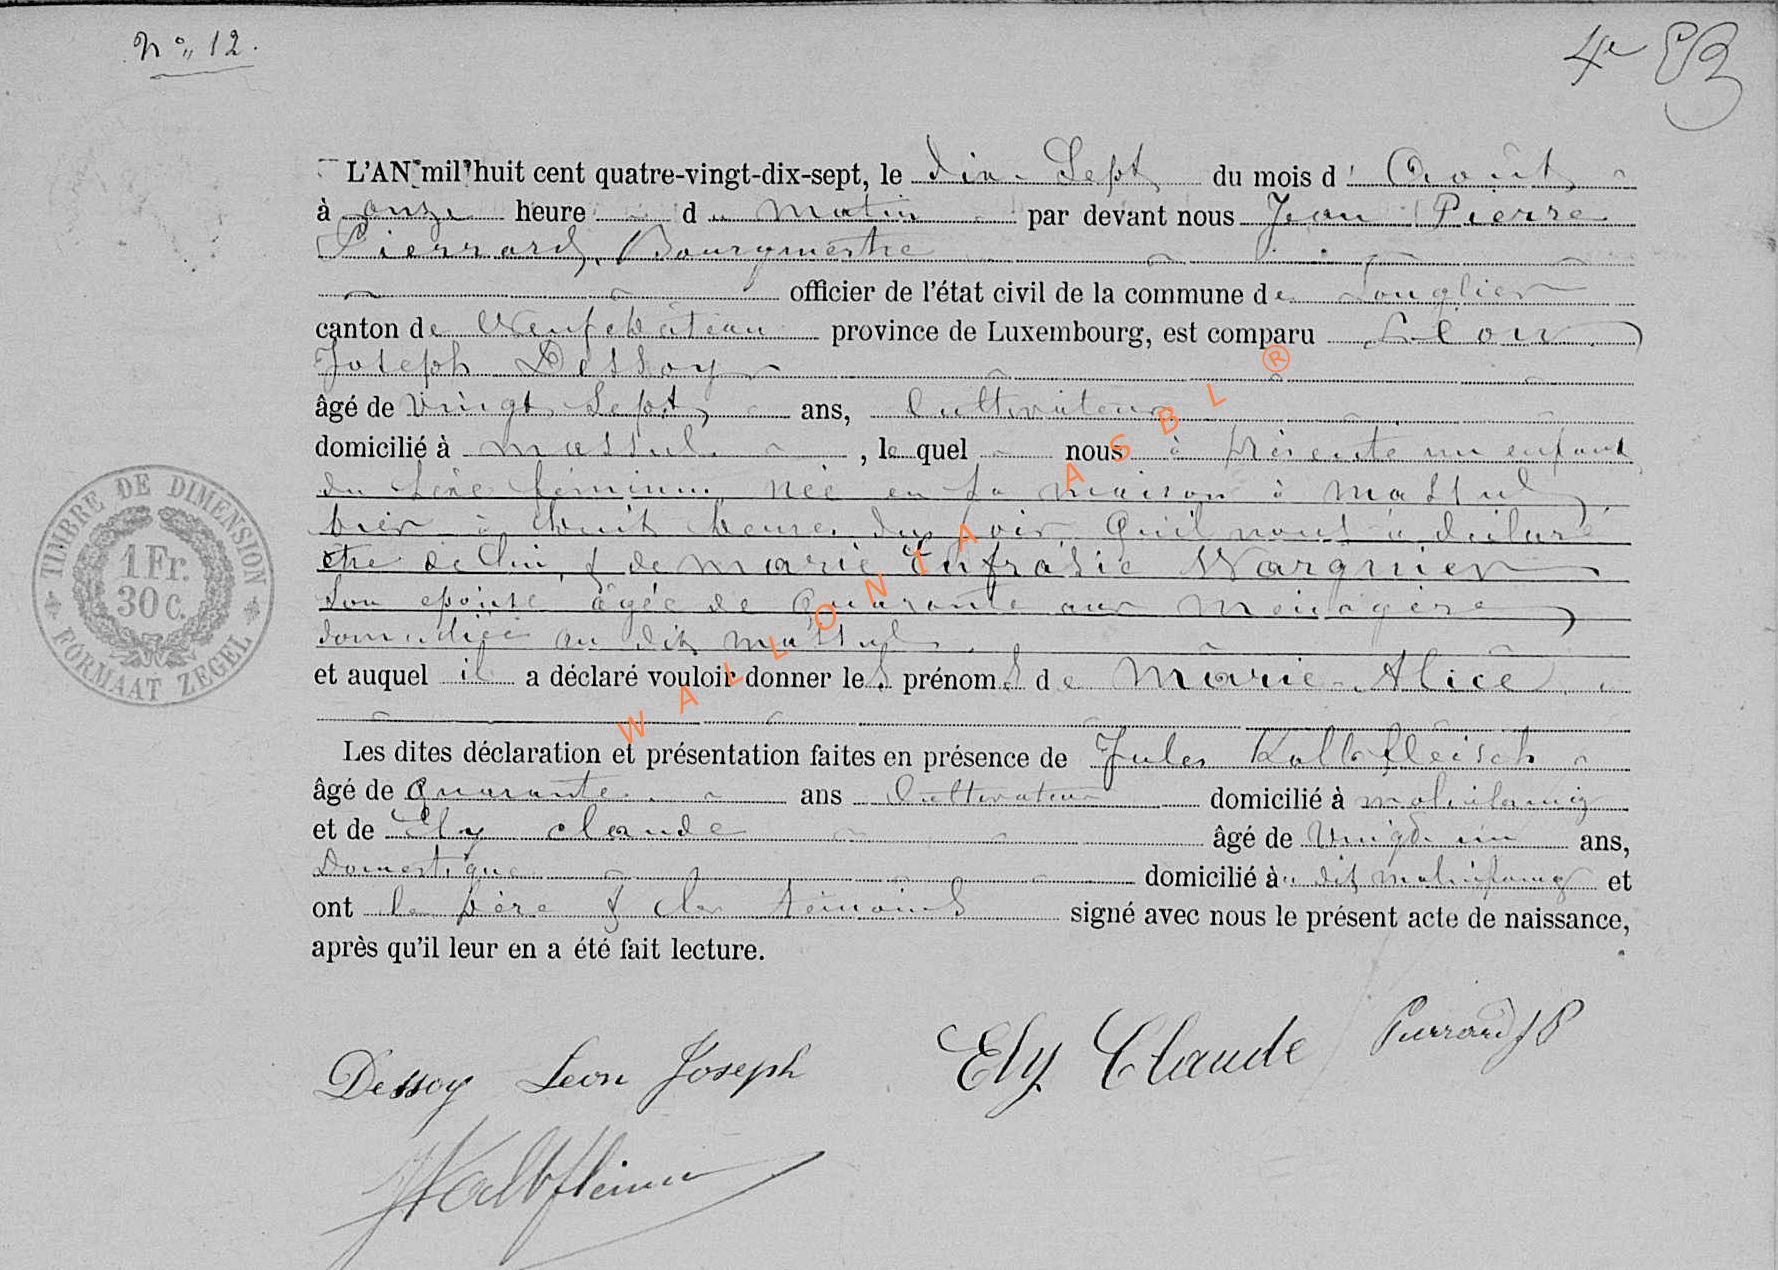 N° 12.
4e
L'AN mil huit cent quatre-vingt-dix-sept, le dix-Sept du mois d' Août
à onze heure d u matin par devant nous Jean Pierre
Pierrard, Bourgmestre
officier de l'état civil de la commune de Longlier
canton de Neufchâteau province de Luxembourg, est comparu Léon
Joseph Dessoy
âgé de vingt Sept, ans, Cultivateur
domicilié à Massul , le quel nous à présenté un enfant
du sèxe féminin, née en sa maison à Massul,
hier à huit heures du soir Qu'il nous à déclaré
être de lui, & de Marie Eufrasie Wargnier
Son épouse âgée de Quarante ans Ménagère,
domiciliée au dit Massul.
et auquel il a déclaré vouloir donner les prénoms de Marie-Alice
Les dites déclaration et présentation faites en présence de Jules Kalbfleisch
âgé de Quarante ans Cultivateur domicilié à molinfaing
et de Ely Claude âgé de Vingt un ans,
Domestique domicilié au dit molinfaing et
ont le père & les témoins signé avec nous le présent acte de naissance,
après qu'il leur en a été fait lecture.
Dessoy Leon Joseph
Ely Claude
Pierrard J P
TIMBRE DE DIMENSION
1 Fr.
30 C.
FORMAAT ZEGEL
WALLONIA ASBL ®